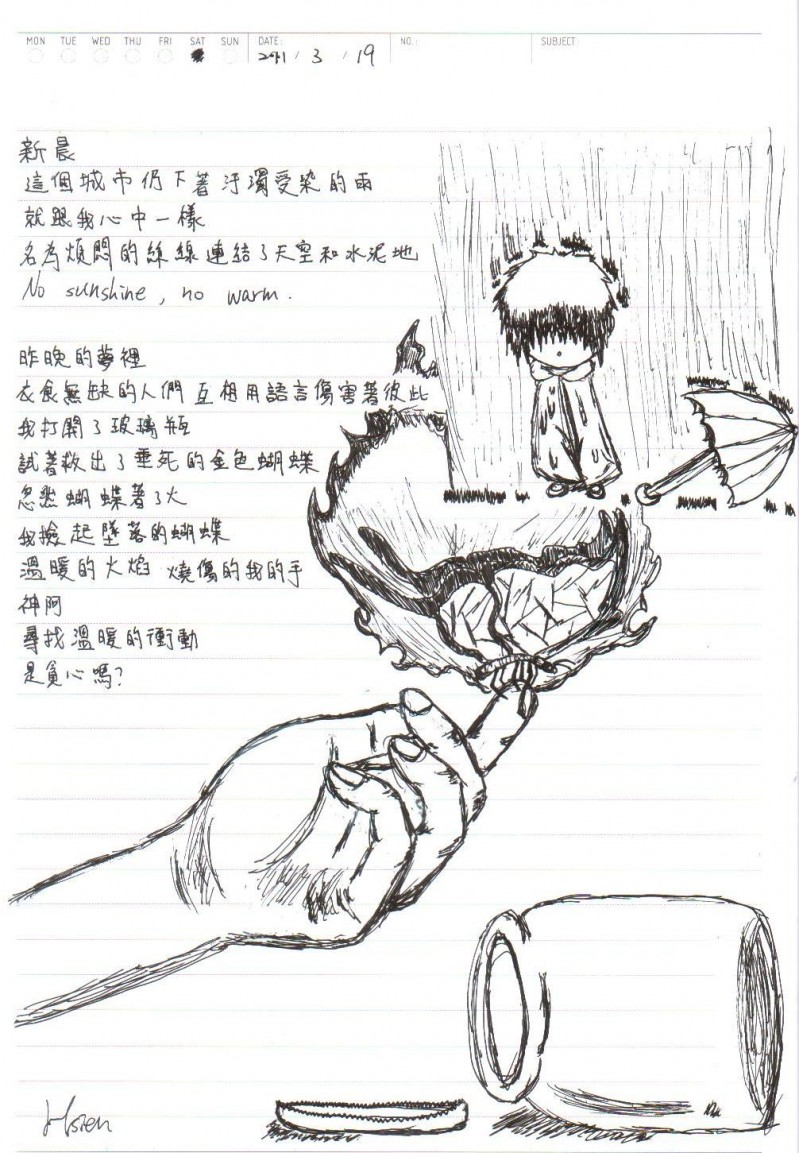 MON TUE WED THU FRI SAT SUN DATE: 2011 / 3 / 19 NO.: SUBJECT:
新晨
這個城市仍下著汙濁受染的雨
就跟我心中一樣
名為煩悶的絲線連結了天空和水泥地
No sunshine, no warm.
昨晚的夢裡
衣食無缺的人們 互相用語言傷害著彼此
我打開了玻璃瓶
試著救出了垂死的金色蝴蝶
忽然蝴蝶著了火
我撿起墜落的蝴蝶
溫暖的火焰 燒傷的我的手
神阿
尋找溫暖的衝動
是貪心嗎?
Hsien